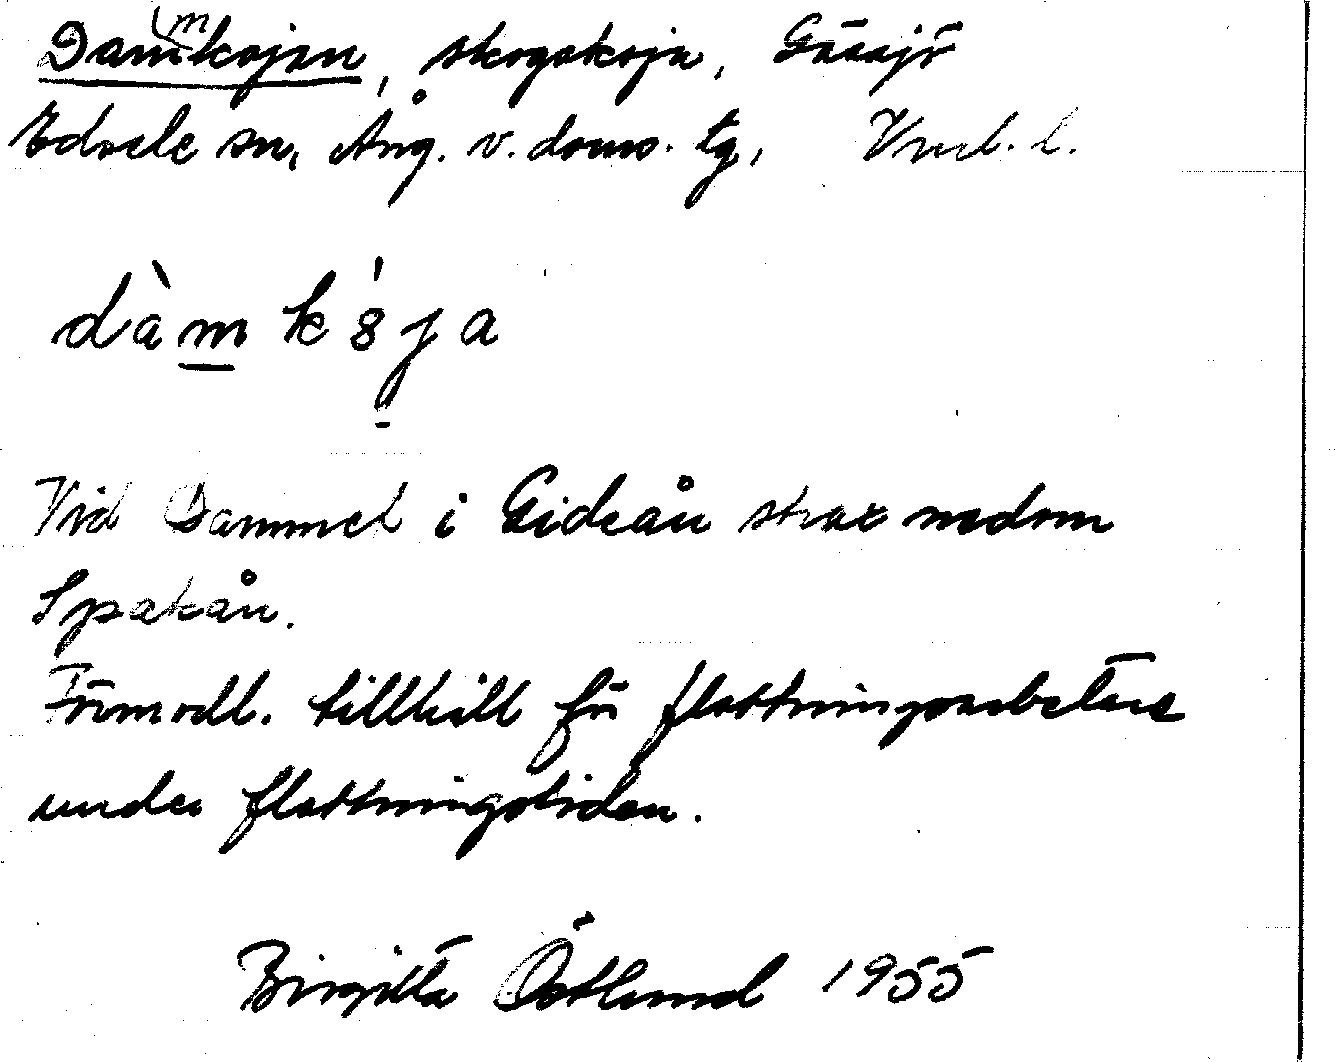 Dam(m)kojan, skogskoja, Gåsjö
Edsele sn, Ång. v. doms. tg, Vnd. l.
dàmkója
Vid Dammet i Gideån strax nedom
Spakån.
Förmodl. tillhåll för flottningsarbetare
under flottningstiden.
Birgitta Östlund 1955